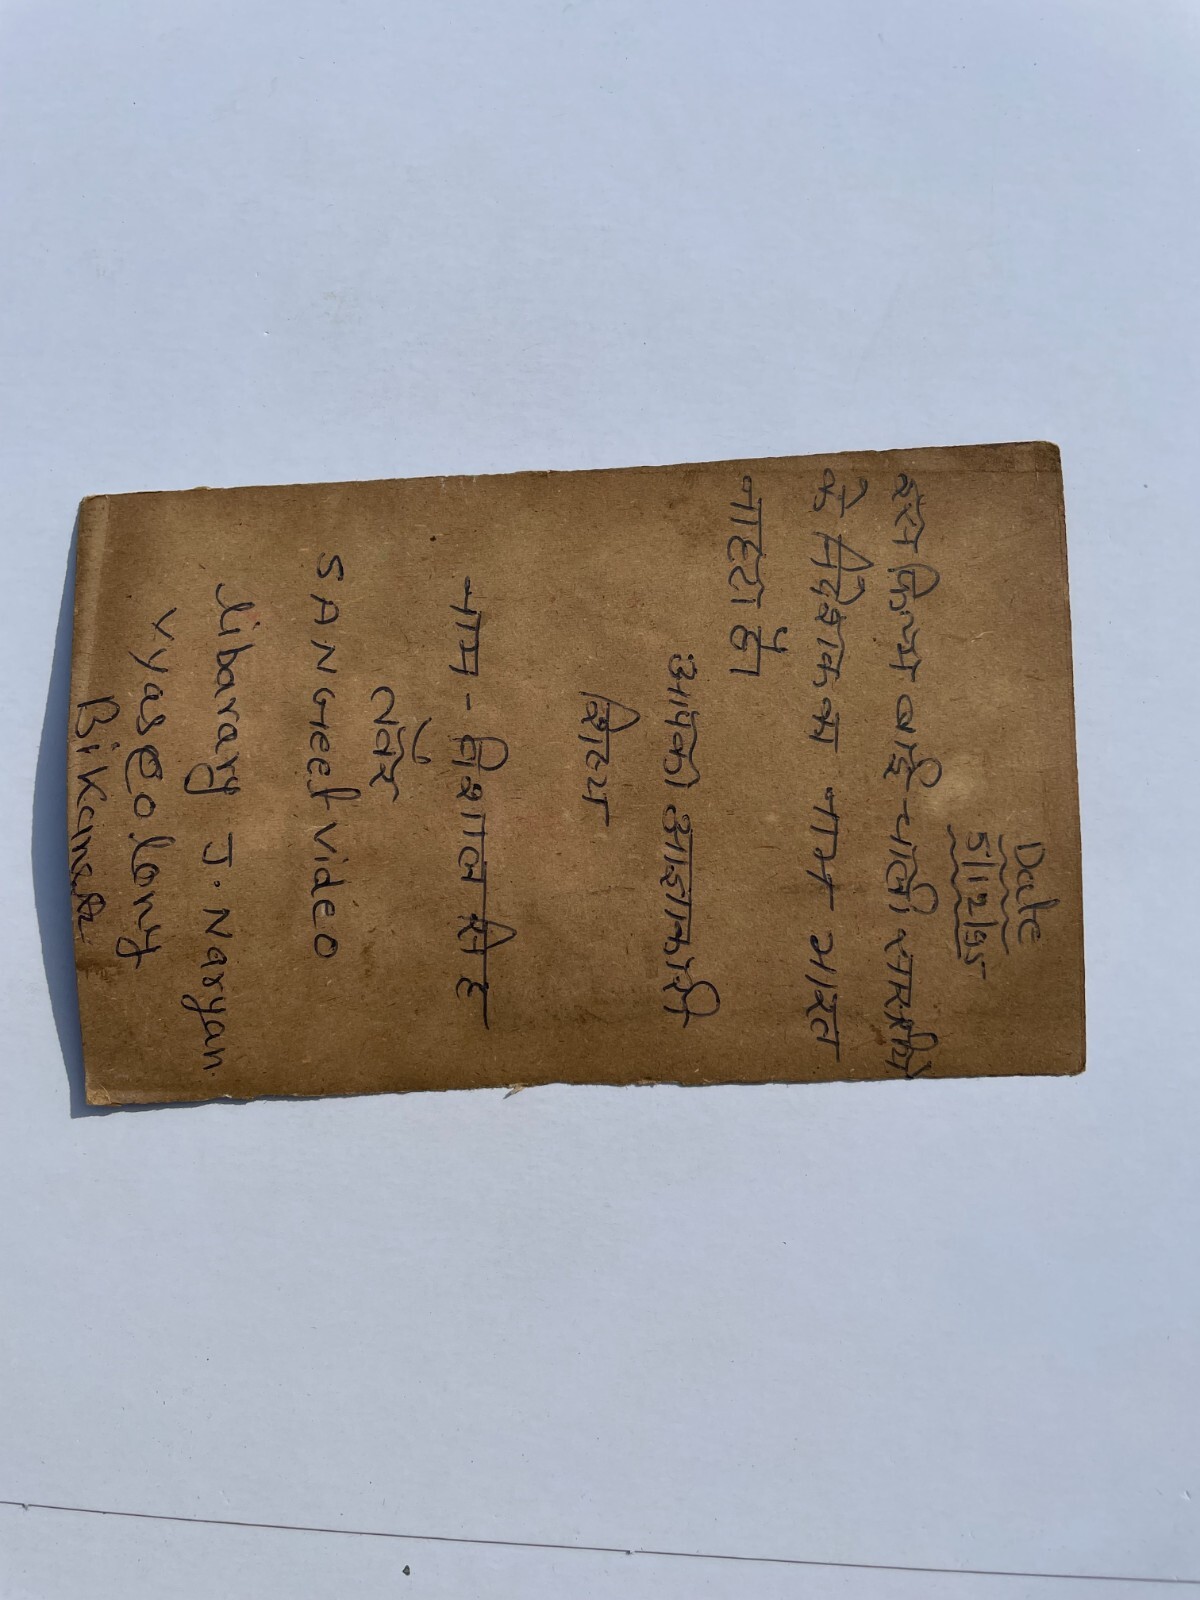 Date
5/12/95
इस फिल्म बाई चाली सासरीये
के निदेशक का नाम भारत
नाहटा है।
आपको आज्ञाकारी
शिष्य
नाम - विशाल सिंह
तंवर
SANGeet Video
libarary J. Naryan.
Vyas Colony
Bikaner